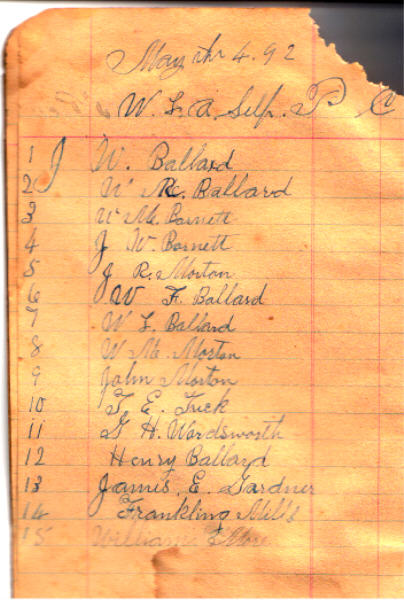 May the 4. 92
W. L. A. Self. P C
1 J W. Ballard
2 W Mc. Ballard
3 W M. Barnett
4 J W. Barnett
5 J R. Morton
6 W F. Ballard
7 W L. Ballard
8 W M. Morton
9 John Morton
10 T. E. Tuck
11 G H. Wordsworth
12 Henry Ballard
13 James. E. Gardner
14 Frankling Mills
15 William